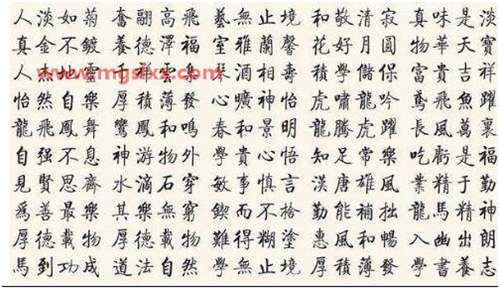 人淡如菊 奮翮高飛 藝無止境 和敬清寂 真味是淡
真金不鍍 養德澤福 室雅蘭馨 花好月圓 物華天寶
人地靈 祥雲集 酒相壽 積學儲保 富貴吉祥
怡然自樂 厚積薄發 心曠神怡 虎嘯龍吟 鳶飛魚躍
龍飛鳳舞 鸞鳳和鳴 春和景明 龍騰虎躍 長風萬裏
自强不息 神游物外 學貴心悟 知足常樂 吃虧是福
見賢思齊 水滴石穿 敏事慎言 漢唐雄風 業精于勤
爲善最樂 其樂無窮 鍥而不捨 勤能補拙 龍馬精神
厚德載物 厚德載物 難得糊塗 惠風和暢 入幽出朗
馬到功成 道法自然 學無止境 厚積薄發 學書養志